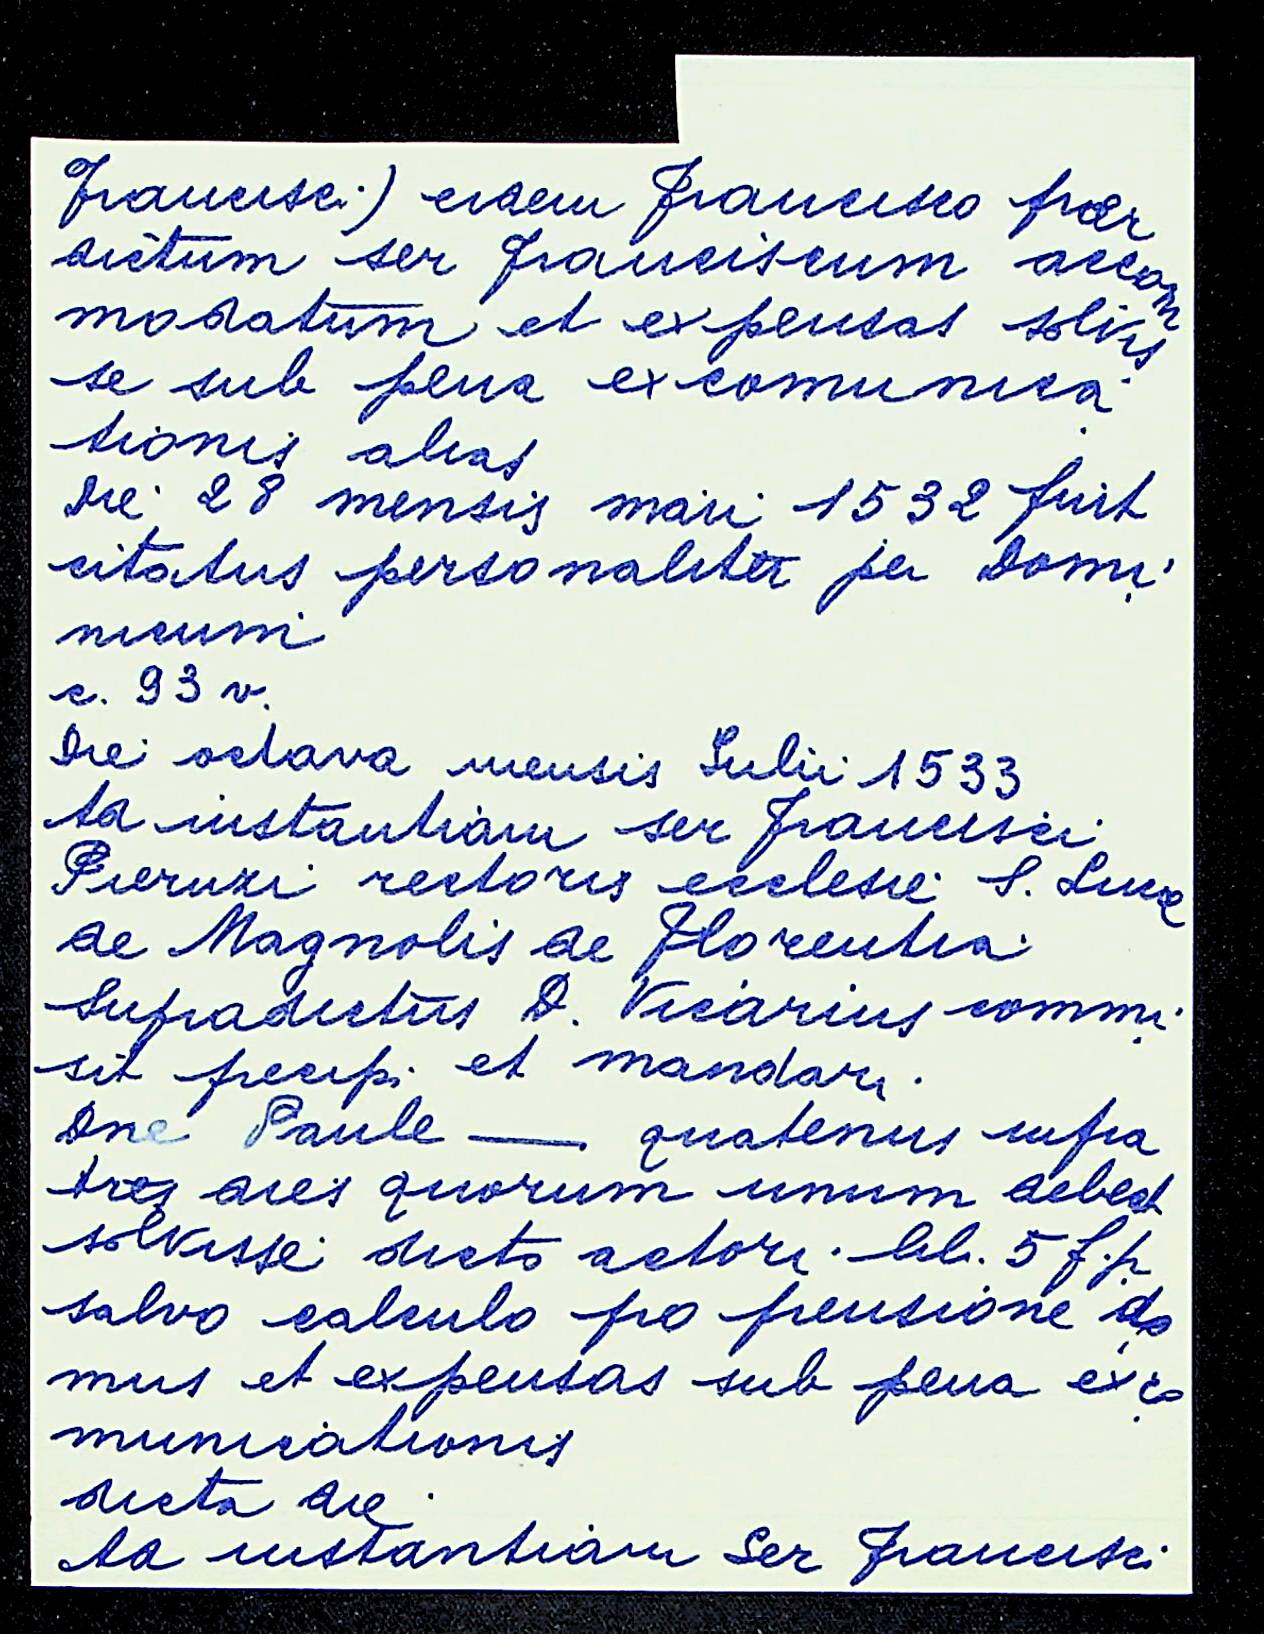 Francisci) eidem Francisco per
dictum ser Franciscum accom
modatum et expensas solvis
se sub pena excomunica
tionis alias
Die 28 mensis maii 1532 fuit
citatus personaliter per Domi
nicum
c. 93 v.
Die octava mensis Iulii 1533
Ad instantiam ser Francisci
Pieruzi rectoris ecclesie S. Luce
de Magnolis de Florentia
Supradictus D. Vicarius commi
sit precipi et mandari
Dne Paule — quatenus infra
tres dies quorum unum debeat
solvisse dicto actori lib. 5 f.p.
salvo calculo pro pensione do
mus et expensas sub pena exco
municationis
dicta die
Ad instantiam Ser Francisci